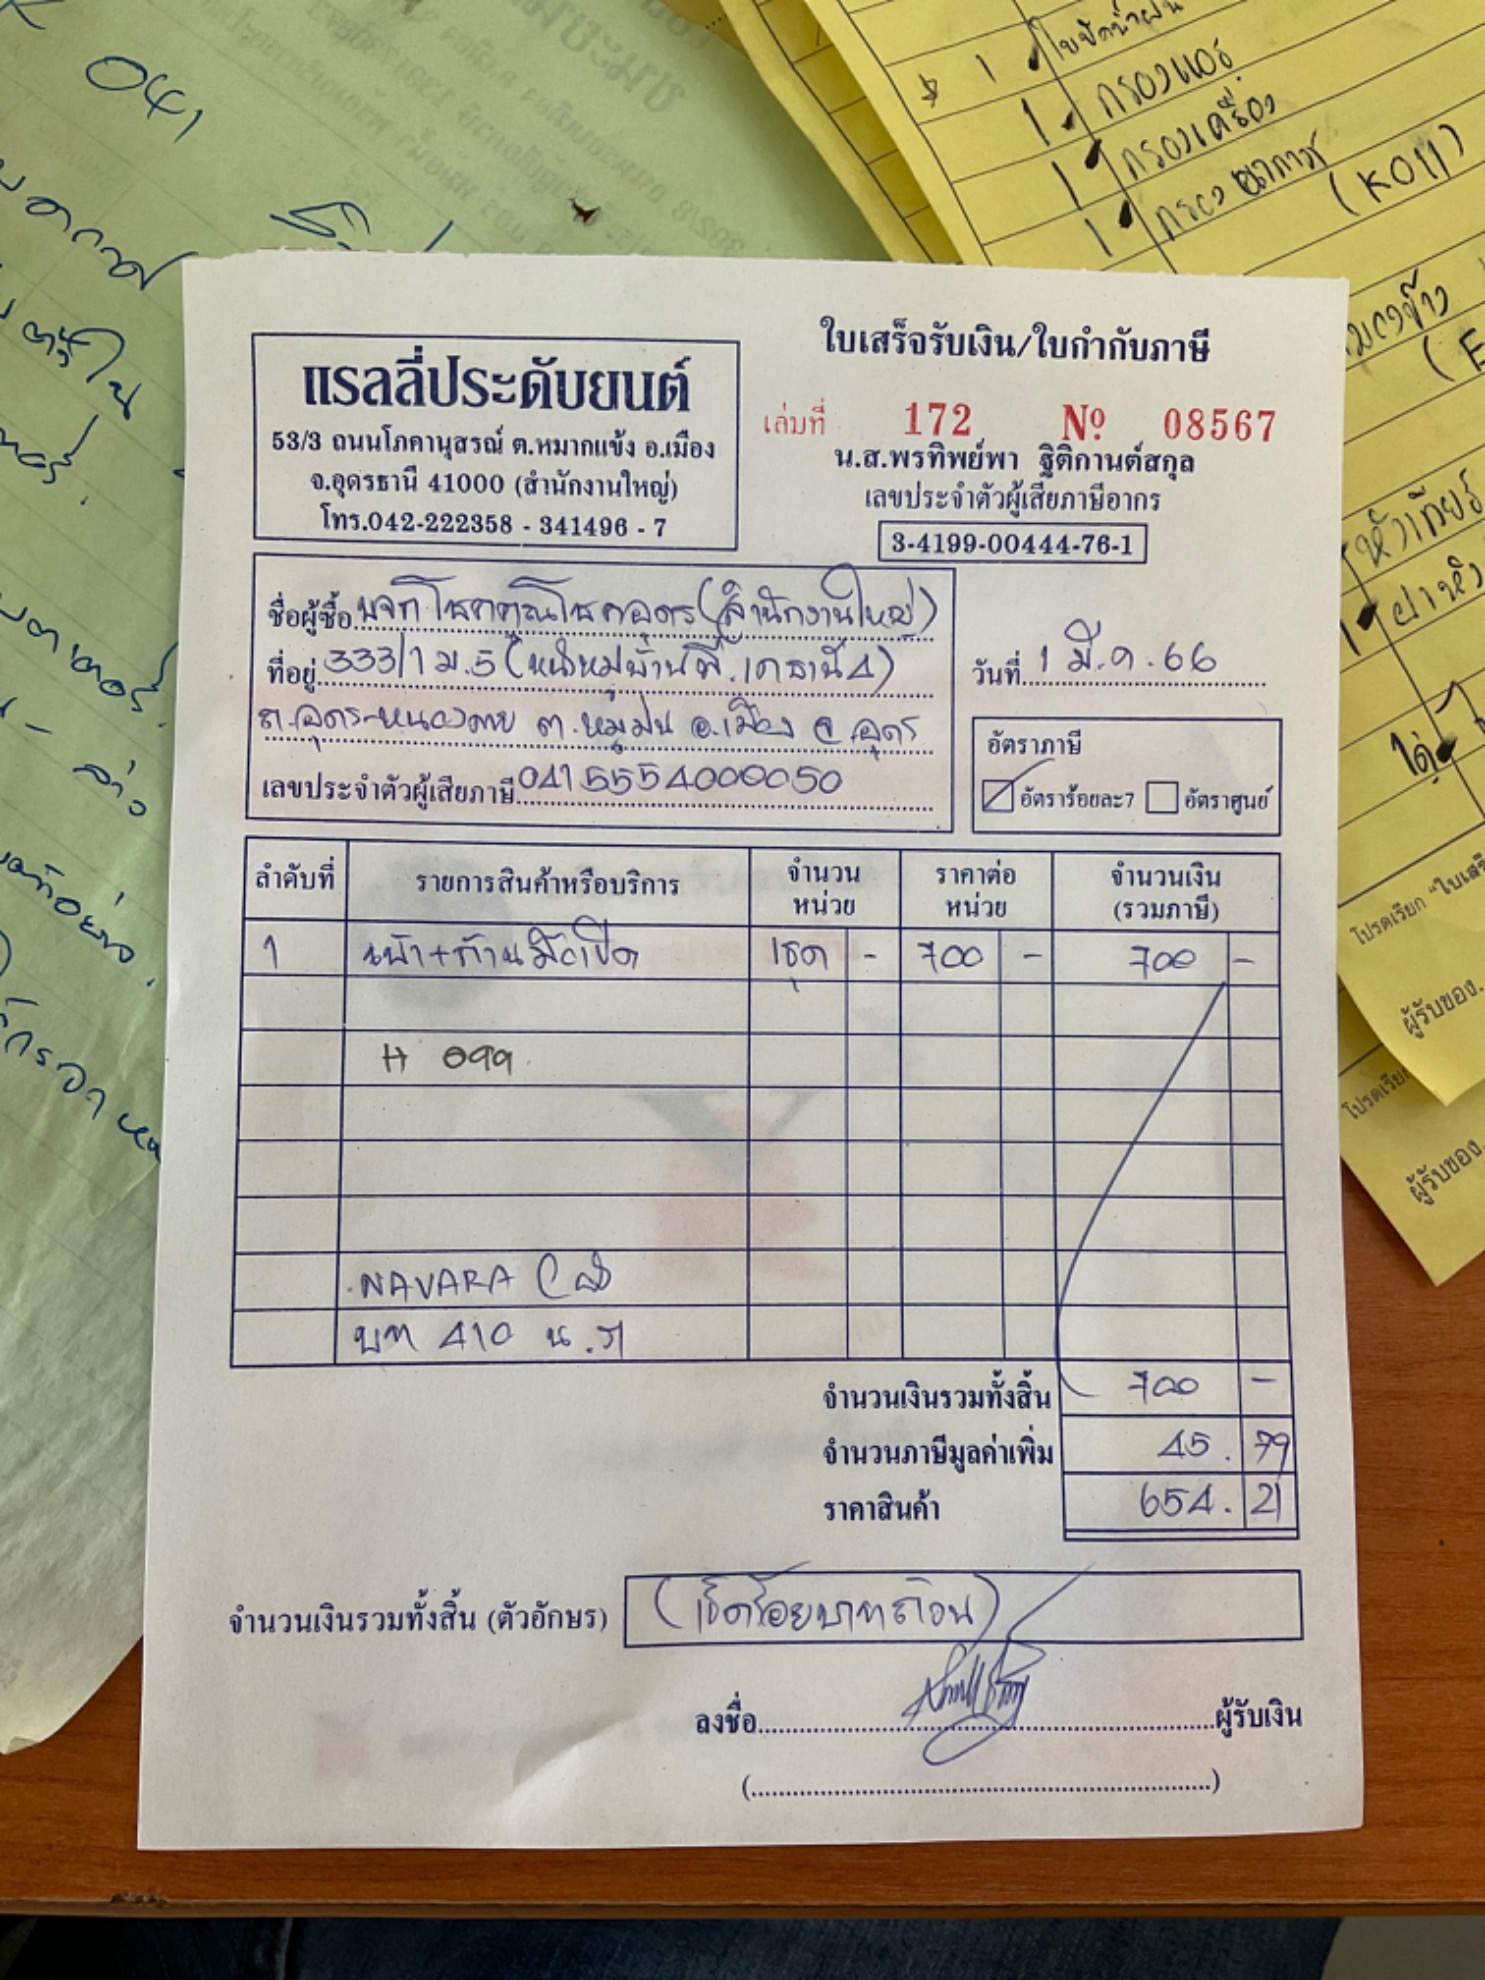 041
1 ใบปัดน้ำฝน
1 กรองแอร์
1 กรองเครื่อง
1 กรองอากาศ
(K011)
ใบเสร็จรับเงิน/ใบกำกับภาษี
แรลลี่ประดับยนต์
53/3 ถนนโภคานุสรณ์ ต.หมากแข้ง อ.เมือง
จ.อุดรธานี 41000 (สำนักงานใหญ่)
โทร.042-222358 - 341496 - 7
เล่มที่ 172 Nº 08567
น.ส.พรทิพย์พา ฐิติกานต์สกุล
เลขประจำตัวผู้เสียภาษีอากร
3-4199-00444-76-1
ชื่อผู้ซื้อ บจก โชคคูณโชคอุดร (สำนักงานใหญ่)
ที่อยู่ 333/1 ม.5 (หน้าหมู่บ้านพี.เค ธานี 4)
ถ.อุดร-หนองคาย ต.หมูม่น อ.เมือง จ.อุดร
เลขประจำตัวผู้เสียภาษี 0415554000050
วันที่ 1 มี.ค. 66
อัตราภาษี
อัตราร้อยละ7 อัตราศูนย์
ลำดับที่ รายการสินค้าหรือบริการ จำนวนหน่วย ราคาต่อหน่วย จำนวนเงิน (รวมภาษี)
1 เบ้า+ก้านมือเปิด 1ชุด - 700 - 700 -
H 099
NAVARA
บท 410 น.ว
จำนวนเงินรวมทั้งสิ้น 700 -
จำนวนภาษีมูลค่าเพิ่ม 45.79
ราคาสินค้า 654.21
จำนวนเงินรวมทั้งสิ้น (ตัวอักษร) (เจ็ดร้อยบาทถ้วน)
ลงชื่อ ผู้รับเงิน
โปรดเรียก "ใบเสร็
ผู้รับของ
โปรดเรียก
ผู้รับของ